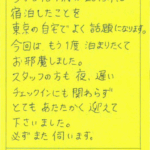 宿泊したことを
東京の自宅でよく話題になります。
今回は、もう1度 泊まりたくて
お邪魔しました。
スタッフの方も 夜、遅い
チェックインにも関わらず
とても あたたかく 迎えて
下さいました。
必ず また 伺います。